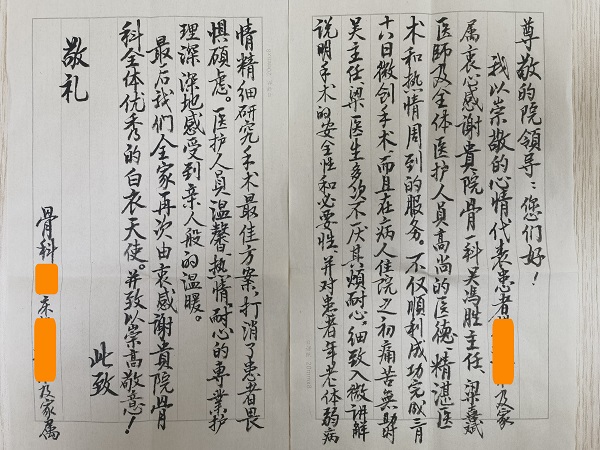 尊敬的院领导：您们好！
我以崇敬的心情代表患者及家
属衷心感谢贵院骨科吴冯胜主任、梁嘉斌
医师及全体医护人员高尚的医德、精湛医
术和热情周到的服务。不仅顺利成功完成三月
十八日微创手术,而且在病人住院之初痛苦無助时
吴主任、梁医生多次不厌其烦耐心,细致入微讲解
说明手术的安全性和必要性,并对患者年老体弱病
情精细研究手术最佳方案,打消了患者畏
惧顾虑。医护人员温馨、热情、耐心的專業护
理深深地感受到亲人般的温暖。
最后我们全家再次由衷感谢貴院骨
科全体优秀的白衣天使。并致以崇高敬意！
此致
敬礼
骨科 床 及家属